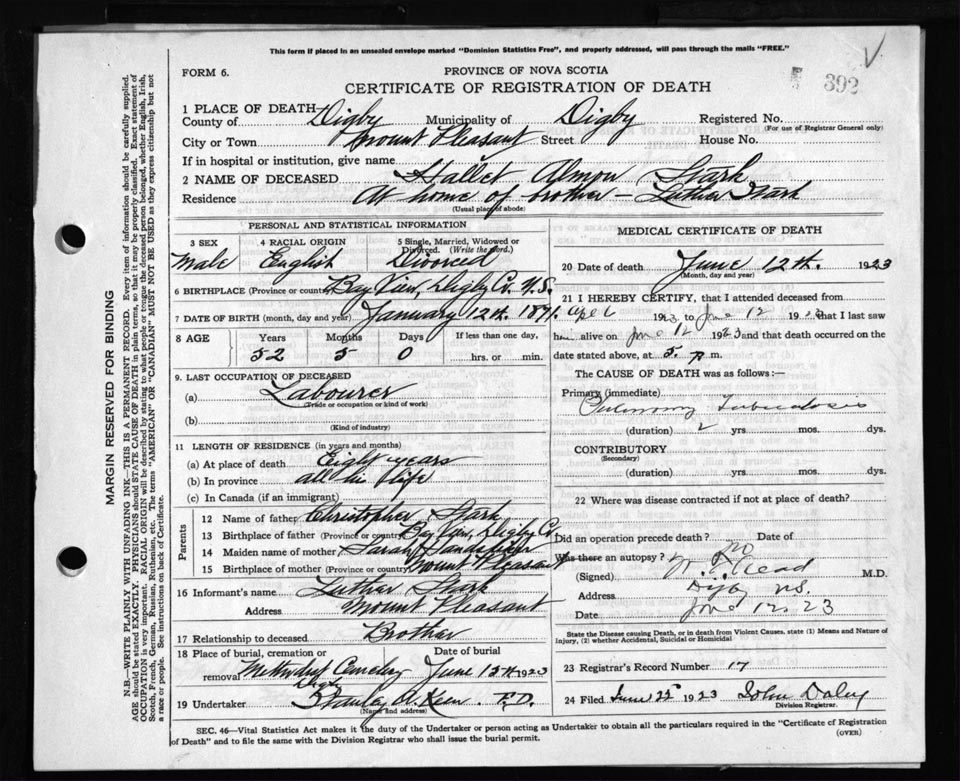 This form if placed in an unsealed envelope marked "Dominion Statistics Free", and properly addressed, will pass through the mails "FREE."
V
FORM 6.
PROVINCE OF NOVA SCOTIA
392
CERTIFICATE OF REGISTRATION OF DEATH
1 PLACE OF DEATH—
County of Digby Municipality of Digby Registered No.
(For use of Registrar General only)
City or Town Mount Pleasant Street House No.
If in hospital or institution, give name
2 NAME OF DECEASED Hallet Almon Stark
Residence At home of brother — Luther Stark
(Usual place of abode)
PERSONAL AND STATISTICAL INFORMATION
3 SEX 4 RACIAL ORIGIN 5 Single, Married, Widowed or Divorced. (Write the word.)
Male English Divorced
6 BIRTHPLACE (Province or country) Bay View, Digby Co. N.S.
7 DATE OF BIRTH (month, day and year) January 12th 1871.
8 AGE Years Months Days If less than one day,
52 5 0 hrs. or min.
9. LAST OCCUPATION OF DECEASED
(a) Labourer
(Trade or occupation or kind of work)
(b)
(Kind of industry)
11 LENGTH OF RESIDENCE (in years and months)
(a) At place of death Eight years
(b) In province all his life
(c) In Canada (if an immigrant)
Parents
12 Name of father Christopher Stark
13 Birthplace of father (Province or country) Bay View, Digby Co
14 Maiden name of mother Sarah
15 Birthplace of mother (Province or country) Mount Pleasant
16 Informant's name Luther Stark
Address Mount Pleasant
17 Relationship to deceased Brother
18 Place of burial, cremation or removal Date of burial
Methodist Cemetery June 13th 1923
19 Undertaker Stanley A. Keen F.D.
(Name and address)
MEDICAL CERTIFICATE OF DEATH
20 Date of death June 12th. 1923
(Month, day and year)
21 I HEREBY CERTIFY, that I attended deceased from
1923 to June 12 1923 that I last saw
him alive on June 12 1923 and that death occurred on the
date stated above, at 5. P m.
The CAUSE OF DEATH was as follows:—
Primary (immediate)
Pulmonary Tuberculosis
(duration) 2 yrs mos. dys.
CONTRIBUTORY
(Secondary)
(duration) yrs. mos. dys.
22 Where was disease contracted if not at place of death?
Did an operation precede death? Date of
Was there an autopsy? no
(Signed) Read M.D.
Address Digby N.S.
Date June 12, 23
State the Disease causing Death, or in death from Violent Causes, state (1) Means and Nature of Injury, (2) whether Accidental, Suicidal or Homicidal
23 Registrar's Record Number 17
24 Filed June 22 1923 John Daley
Division Registrar.
SEC. 46—Vital Statistics Act makes it the duty of the Undertaker or person acting as Undertaker to obtain all the particulars required in the "Certificate of Registration
of Death" and to file the same with the Division Registrar who shall issue the burial permit.
(OVER)
MARGIN RESERVED FOR BINDING
N.B.—WRITE PLAINLY WITH UNFADING INK—THIS IS A PERMANENT RECORD. Every item of information should be carefully supplied.
AGE should be stated EXACTLY. PHYSICIANS should STATE CAUSE OF DEATH in plain terms, so that it may be properly classified. Exact statement of
OCCUPATION is very important. RACIAL ORIGIN will be described by stating to what people or tongue the deceased person belonged, whether English, Irish,
Scotch, French, German, Russian, Ruthenian, etc. The terms "AMERICAN" OR "CANADIAN" MUST NOT BE USED as they express citizenship but not
a race or people. See instructions on back of Certificate.